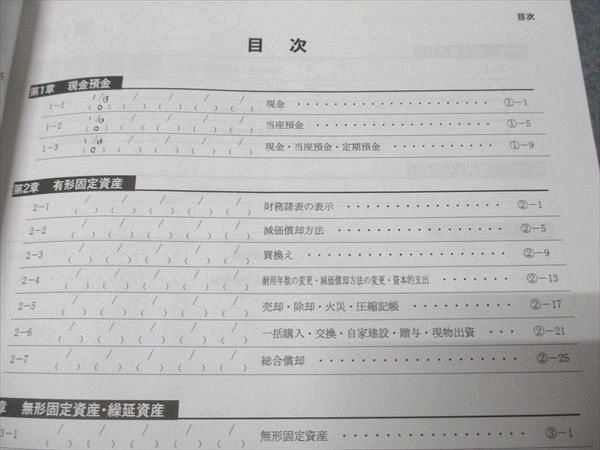 目次
目 次
第1章 現金預金
1-1 1/13 / / / / / 現金 ・・・・・・・・・・・・・・・・・・ ①-1
(0) ( ) ( ) ( ) ( ) ( )
1-2 1/13 / / / / / 当座預金 ・・・・・・・・・・・・・・・・ ①-5
(0) ( ) ( ) ( ) ( ) ( )
1-3 1/13 / / / / / 現金・当座預金・定期預金 ・・・・・・・・・・ ①-9
(0) ( ) ( ) ( ) ( ) ( )
第2章 有形固定資産
2-1 / / / / / / 財務諸表の表示 ・・・・・・・・・・・・・・ ②-1
( ) ( ) ( ) ( ) ( ) ( )
2-2 / / / / / / 減価償却方法 ・・・・・・・・・・・・・・・ ②-5
( ) ( ) ( ) ( ) ( ) ( )
2-3 / / / / / / 買換え ・・・・・・・・・・・・・・・・・・ ②-9
( ) ( ) ( ) ( ) ( ) ( )
2-4 / / / / / / 耐用年数の変更・減価償却方法の変更・資本的支出 ・・・・・・・ ②-13
( ) ( ) ( ) ( ) ( ) ( )
2-5 / / / / / / 売却・除却・火災・圧縮記帳 ・・・・・・・・・ ②-17
( ) ( ) ( ) ( ) ( ) ( )
2-6 / / / / / / 一括購入・交換・自家建設・贈与・現物出資 ・・・・ ②-21
( ) ( ) ( ) ( ) ( ) ( )
2-7 / / / / / / 総合償却 ・・・・・・・・・・・・・・・・・ ②-25
( ) ( ) ( ) ( ) ( ) ( )
章 無形固定資産・繰延資産
3-1 / / / / / / 無形固定資産 ・・・・・・・・・・・・・・・ ③-1
( ) ( ) ( ) ( ) ( ) ( )